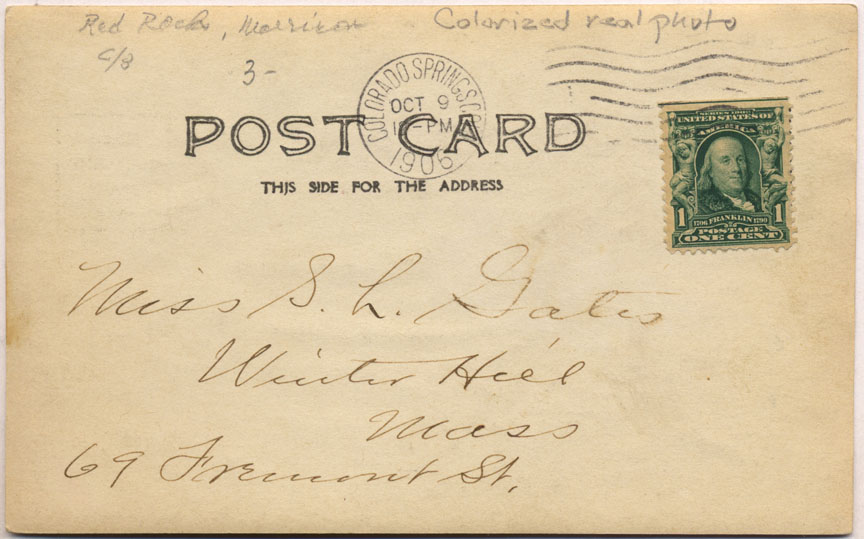 Red Rocks, Morrison Colorized real photo
c/8
3-
COLORADO SPRINGS, COLO.
OCT 9
-PM
1906
POST CARD
THIS SIDE FOR THE ADDRESS
SERIES 1902
UNITED STATES OF
AMERICA
1 1
1706 FRANKLIN 1790
POSTAGE
ONE CENT
Miss S. L. Gates
Winter Hill
Mass
69 Fremont St.